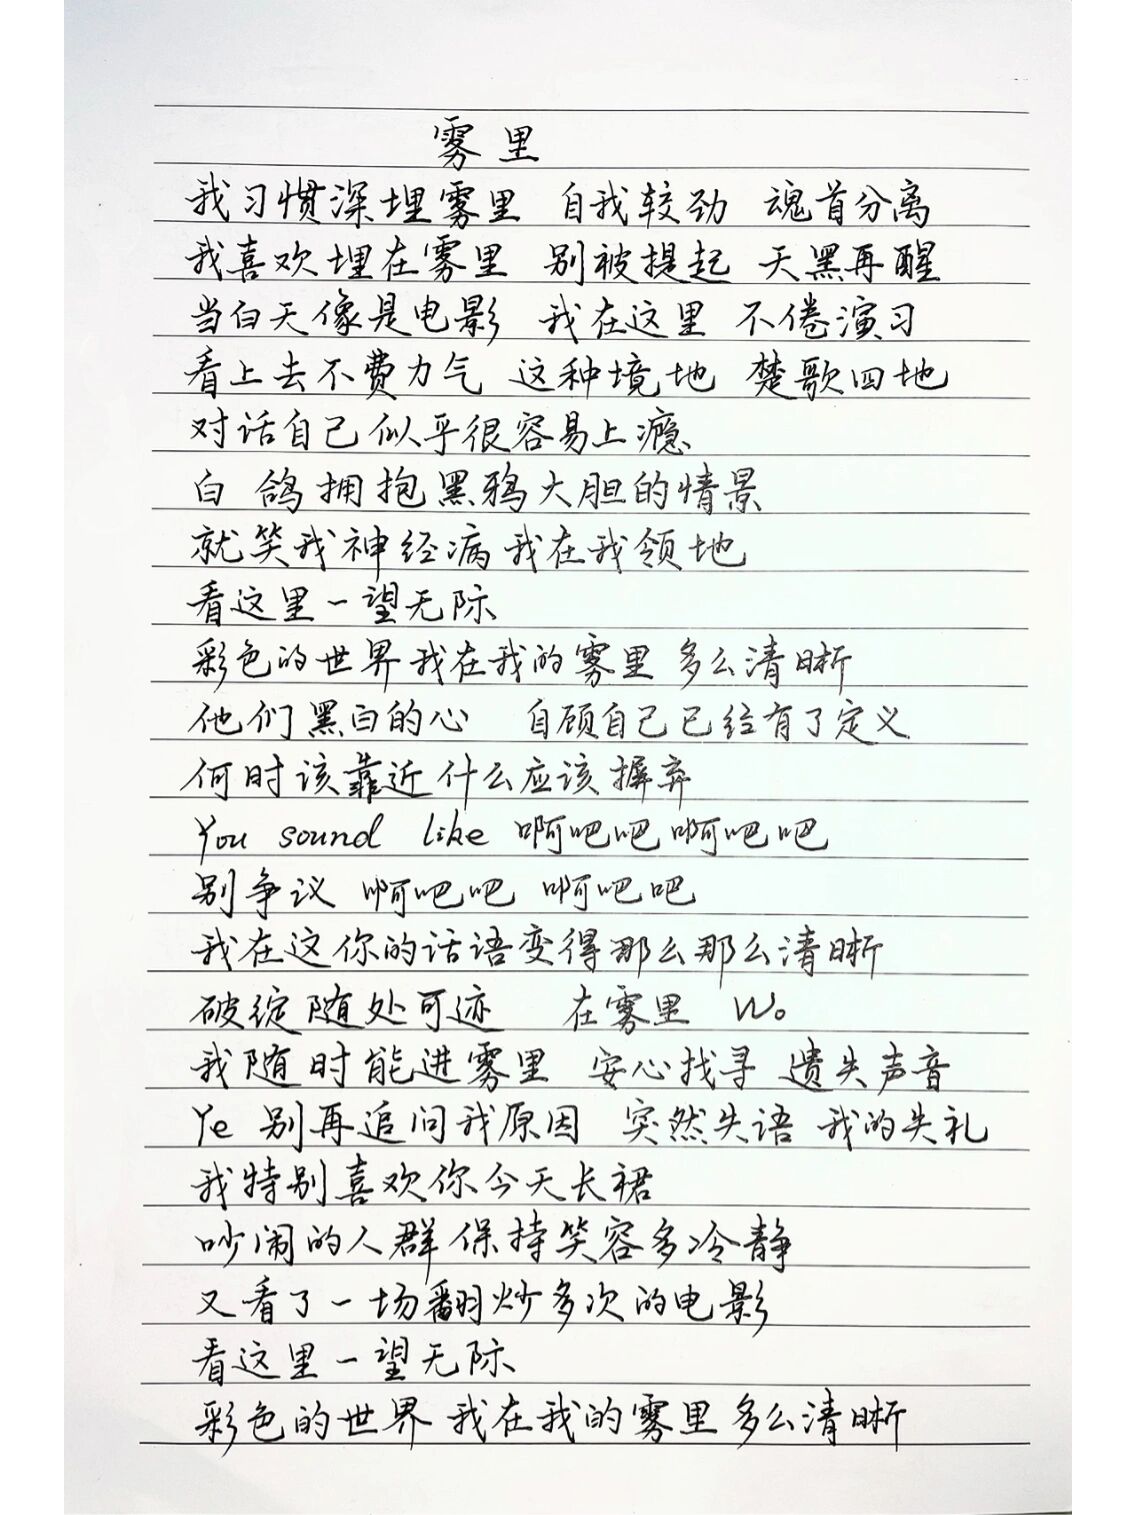 雾里
我习惯深埋雾里 自我较劲 魂首分离
我喜欢埋在雾里 别被提起 天黑再醒
当白天像是电影 我在这里 不倦演习
看上去不费力气 这种境地 楚歌四地
对话自己似乎很容易上瘾
白 鸽拥抱黑鸦大胆的情景
就笑我神经病 我在我领地
看这里一望无际
彩色的世界 我在我的雾里 多么清晰
他们黑白的心 自顾自己已经有了定义
何时该靠近 什么应该摒弃
You sound like 啊吧吧 啊吧吧
别争议 啊吧吧 啊吧吧
我在这 你的话语变得那么那么清晰
破绽随处可迹 在雾里 Wo
我随时能进雾里 安心找寻 遗失声音
Ye 别再追问我原因 突然失语 我的失礼
我特别喜欢你今天长裙
吵闹的人群 保持笑容多冷静
又看了一场翻炒多次的电影
看这里一望无际
彩色的世界 我在我的雾里 多么清晰